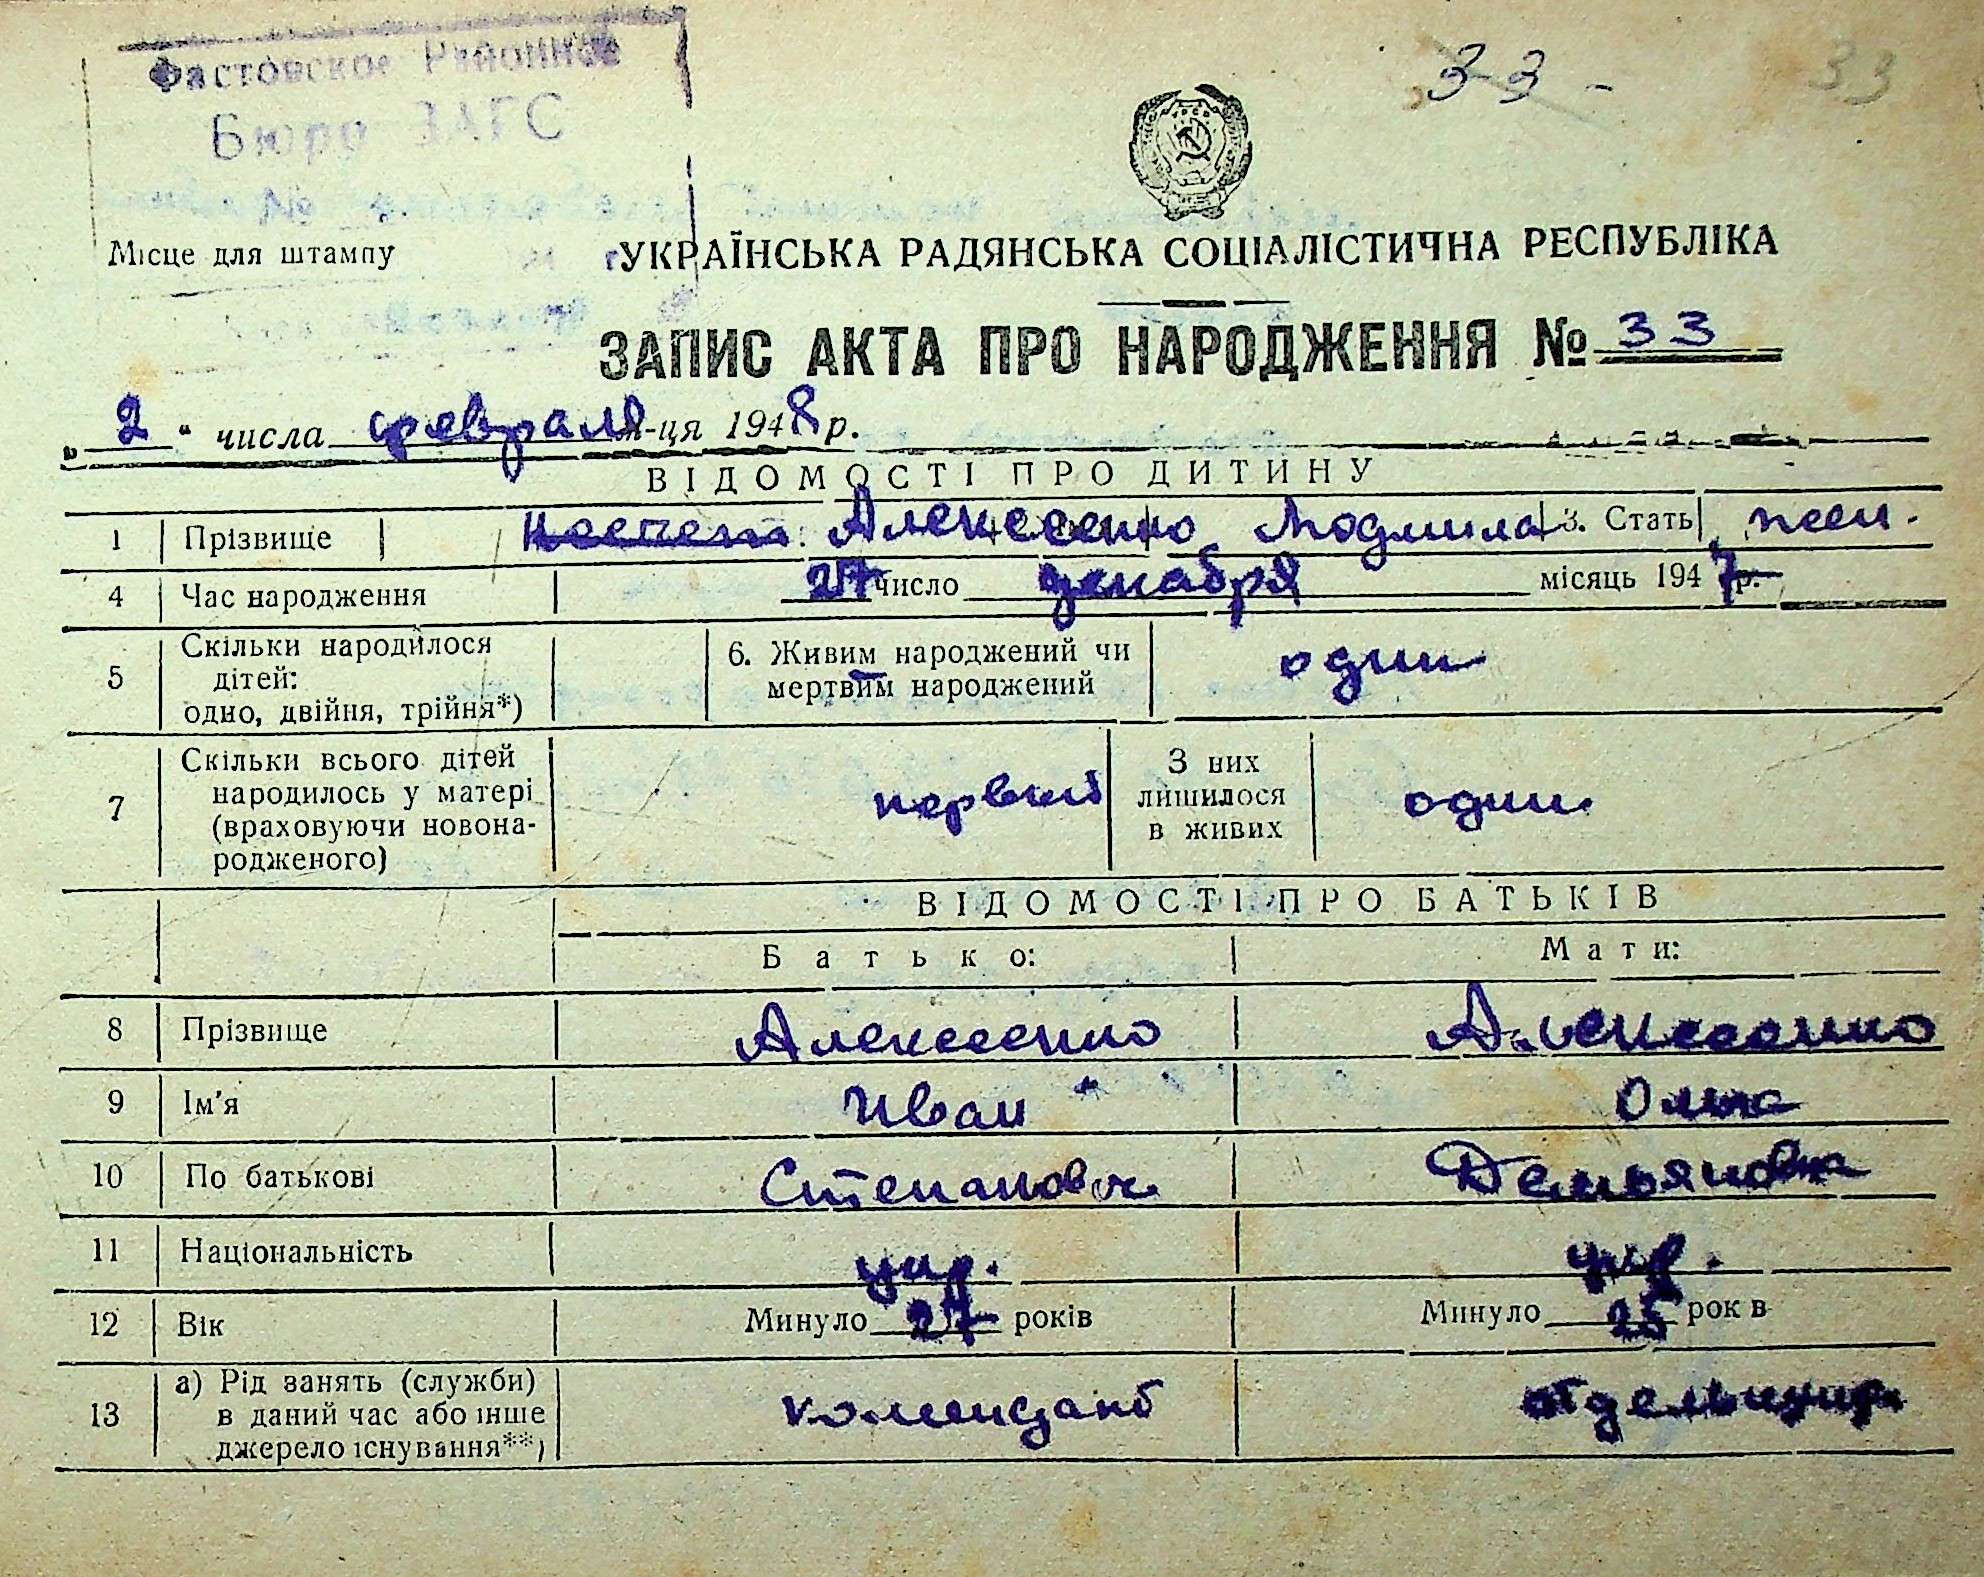 Фастовское Районное
Бюро ЗАГС
33 -
33
Місце для штампу
УКРАЇНСЬКА РАДЯНСЬКА СОЦІАЛІСТИЧНА РЕСПУБЛІКА
ЗАПИС АКТА ПРО НАРОДЖЕННЯ № 33
„ 2 “ числа февраля м-ця 1948 р.
ВІДОМОСТІ ПРО ДИТИНУ
1 Прізвище Алексеенко Людмила 3. Стать жен.
4 Час народження 27 число декабря місяць 1947 р.
5 Скільки народилося дітей: одно, двійня, трійня*) 6. Живим народжений чи мертвим народжений один
7 Скільки всього дітей народилось у матері (враховуючи новонародженого) первый З них лишилося в живих один
ВІДОМОСТІ ПРО БАТЬКІВ
Батько: Мати:
8 Прізвище Алексеенко Алексеенко
9 Ім'я Иван Ольга
10 По батькові Степанович Демьяновна
11 Національність укр. укр.
12 Вік Минуло 27 років Минуло 25 років
13 а) Рід занять (служби) в даний час або інше джерело існування**)